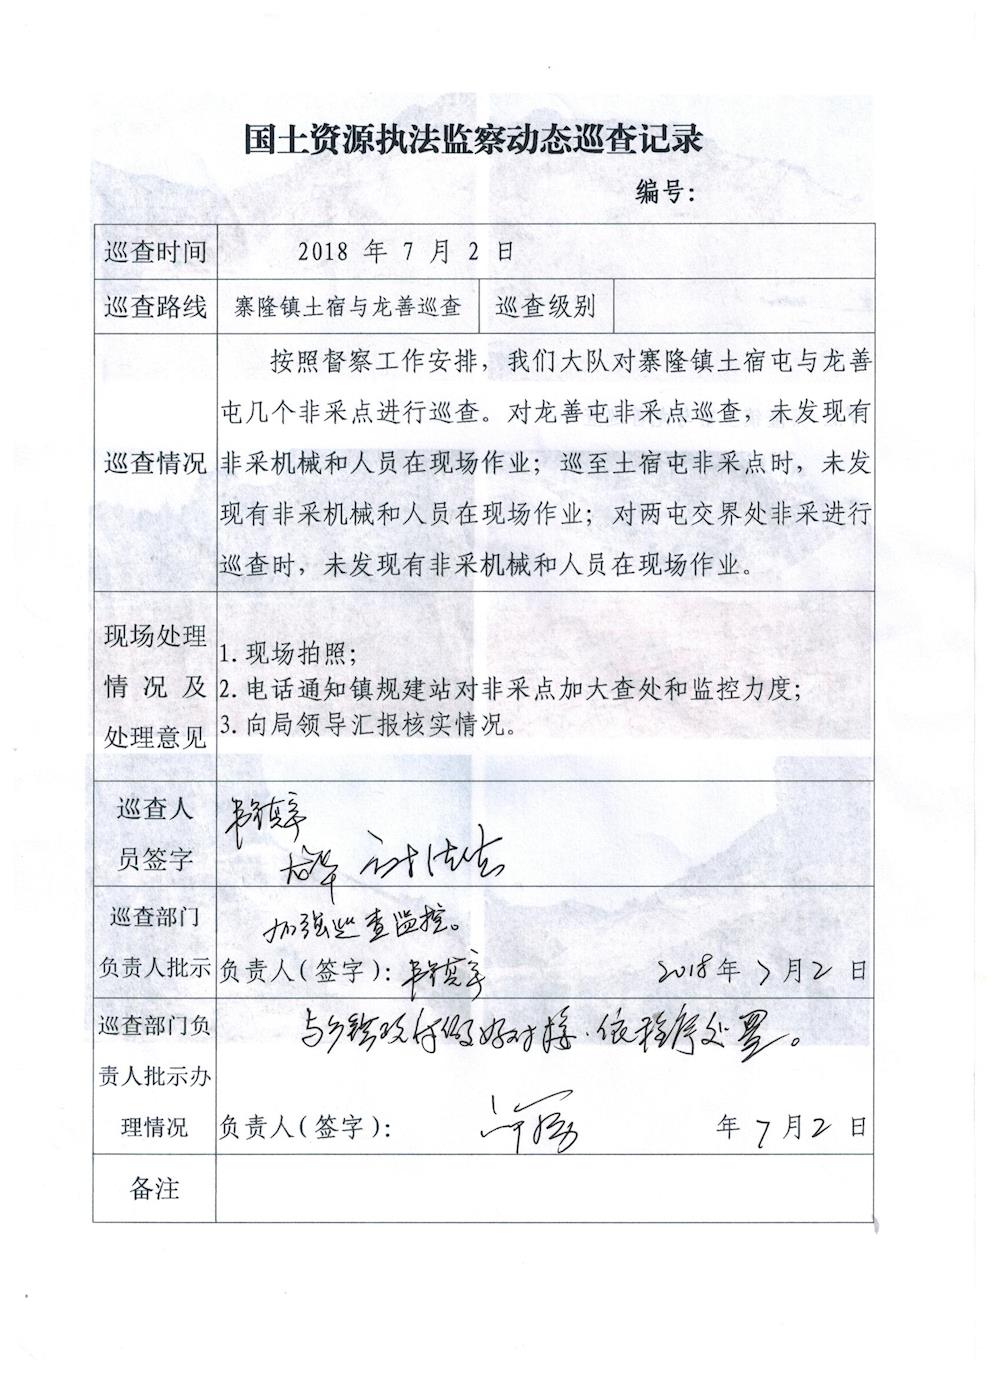 国土资源执法监察动态巡查记录
编号：
巡查时间 2018 年 7 月 2 日
巡查路线 寨隆镇土宿与龙善巡查 巡查级别
巡查情况
按照督察工作安排，我们大队对寨隆镇土宿屯与龙善
屯几个非采点进行巡查。对龙善屯非采点巡查，未发现有
非采机械和人员在现场作业；巡至土宿屯非采点时，未发
现有非采机械和人员在现场作业；对两屯交界处非采进行
巡查时，未发现有非采机械和人员在现场作业。
现场处理
情况及
处理意见
1.现场拍照；
2.电话通知镇规建站对非采点加大查处和监控力度；
3.向局领导汇报核实情况。
巡查人
员签字
巡查部门
负责人批示
加强巡查监控。
负责人（签字）： 2018年7月2日
巡查部门负
责人批示办
理情况
依程序处置。
负责人（签字）： 年7月2日
备注